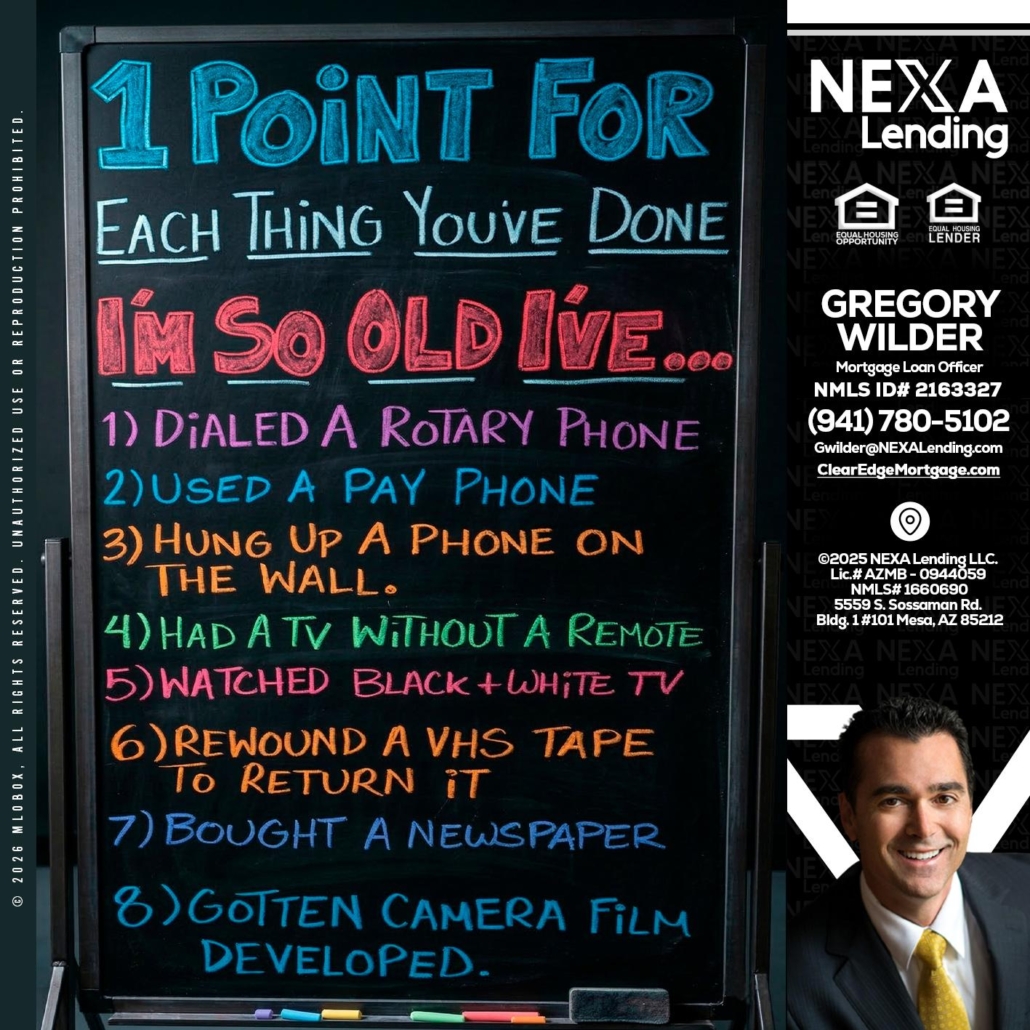 1 POiNT FOR
EACH THING YOU'VE DONE
I'M SO OLD I'VE...
1) DiALED A ROTARY PHONE
2) USED A PAY PHONE
3) HUNG UP A PHONE ON
THE WALL.
4) HAD A TV WiTHOUT A REMOTE
5) WATCHED BLACK + WHiTE TV
6) REWOUND A VHS TAPE
TO RETURN iT
7) BOUGHT A NEWSPAPER
8) GOTTEN CAMERA FiLM
DEVELOPED.
© 2026 MLOBOX, ALL RIGHTS RESERVED. UNAUTHORIZED USE OR REPRODUCTION PROHIBITED.
NEXA
Lending
EQUAL HOUSING
OPPORTUNITY
EQUAL HOUSING
LENDER
GREGORY
WILDER
Mortgage Loan Officer
NMLS ID# 2163327
(941) 780-5102
Gwilder@NEXALending.com
ClearEdgeMortgage.com
©2025 NEXA Lending LLC.
Lic.# AZMB - 0944059
NMLS# 1660690
5559 S. Sossaman Rd.
Bldg. 1 #101 Mesa, AZ 85212